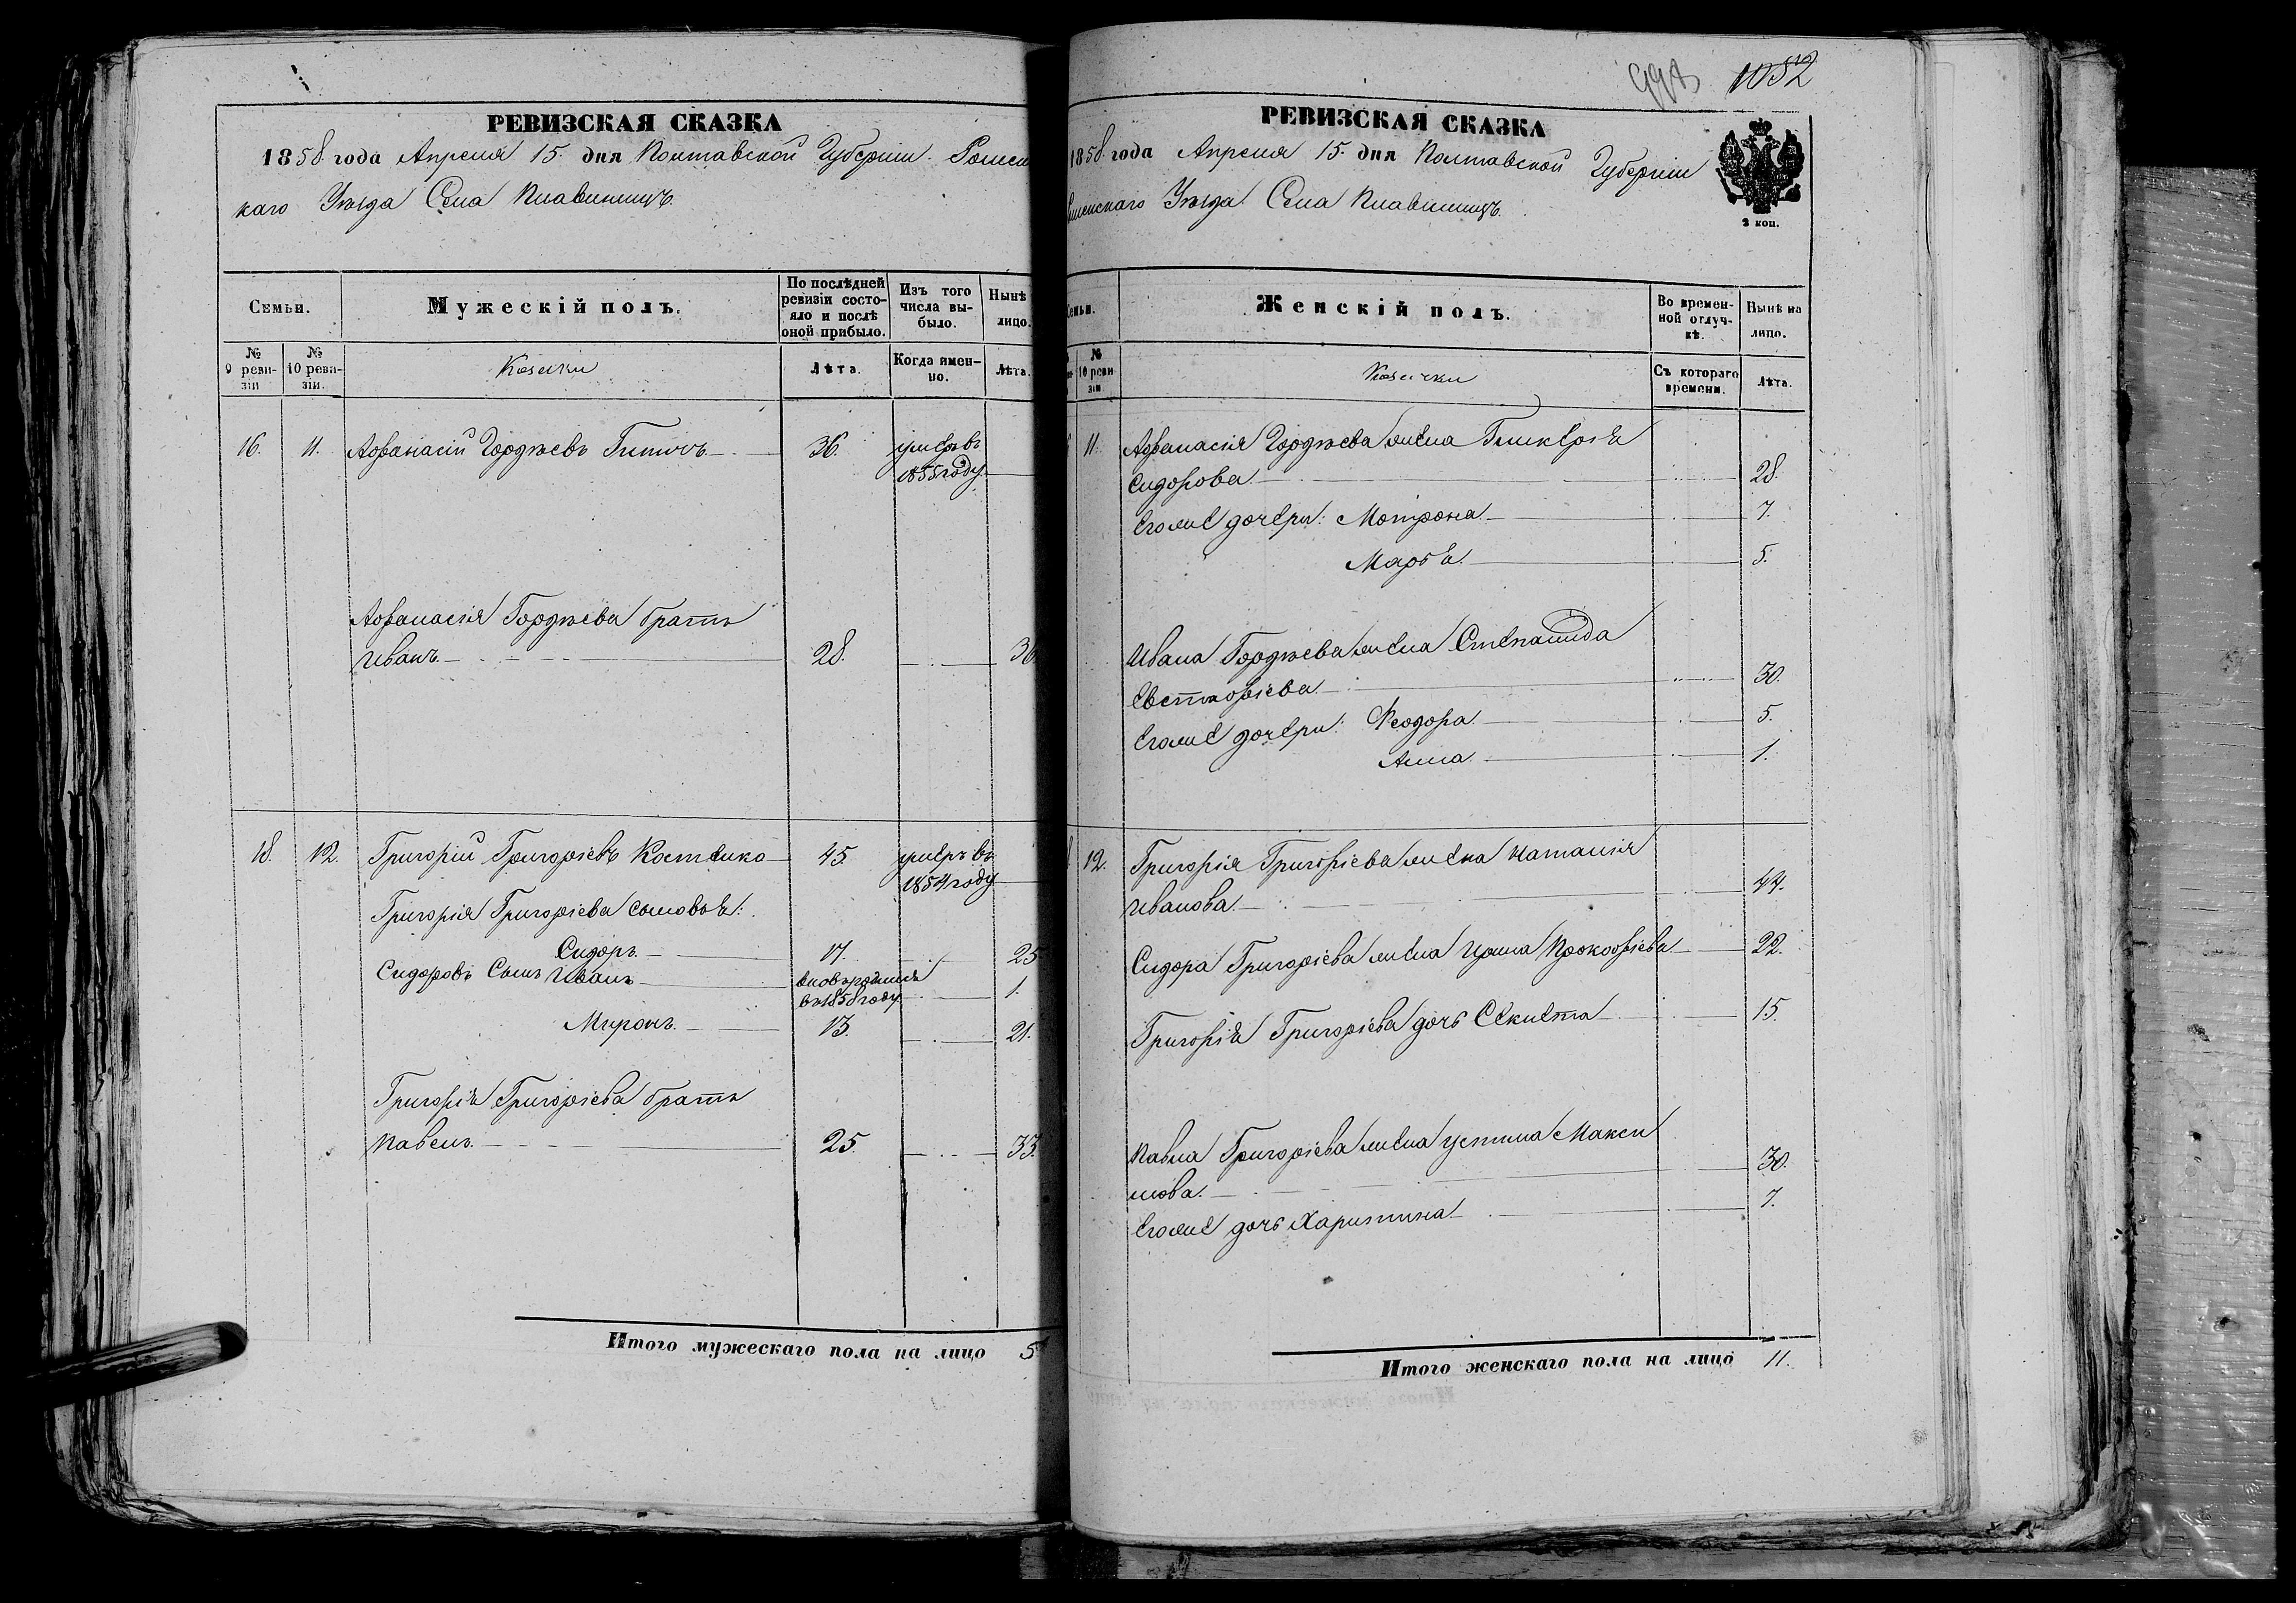 РЕВИЗСКАЯ СКАЗКА
1858 года Апреля 15. дня Полтавской Губерніи. Ромен
каго Уѣзда Села Плавинищъ.
Семьи.
Мужескій полъ.
По послѣдней ревизіи состояло и послѣ оной прибыло.
Изъ того числа выбыло.
Нынѣ лицо.
№ 9 ревизіи
№ 10 ревизіи.
Козаки
Лѣта.
Когда именно.
Лѣта.
16. 11. Афанасій Гордѣевъ 36. умеръ въ
1855 году.
Афанасія Гордѣева братъ
Иванъ. 28. 36
18. 12. Григорій Григоріевъ Костенко 45. умеръ въ
1854 году
Григорія Григоріева сыновья:
Сидоръ. 17. 25
Сидоровъ Сынъ Иванъ вновь рожденъ 1.
въ 1858 году
Миронъ. 13. 21.
Григорія Григоріева братъ
Павелъ. 25. 33.
Итого мужескаго пола на лицо 5
1052
РЕВИЗСКАЯ СКАЗКА
1858 года Апреля 15. дня Полтавской Губерніи
менскаго Уѣзда Села Плавинищъ.
2 коп.
Семьи.
Женскій полъ.
Во временной отлучкѣ.
Нынѣ на лицо.
№ 10 ревизіи
Козачки
Съ котораго времени.
Лѣта.
11. Афанасія Гордѣева жена Гликерія
Сидорова. 28.
Его же дочери: Мотрона. 7.
Марья. 5.
Ивана Гордѣева жена Степанида
Евстафіева. 30.
Его же дочери: Феодора. 5.
Анна. 1.
12. Григорія Григоріева жена Наталія
Иванова. 44.
Сидора Григоріева жена Ирина Прокофіева 22.
Григорія Григоріева дочь 15.
Павла Григоріева жена Устина Макси
мова. 30.
Его же дочь Харитина 7.
Итого женскаго пола на лицо 11.